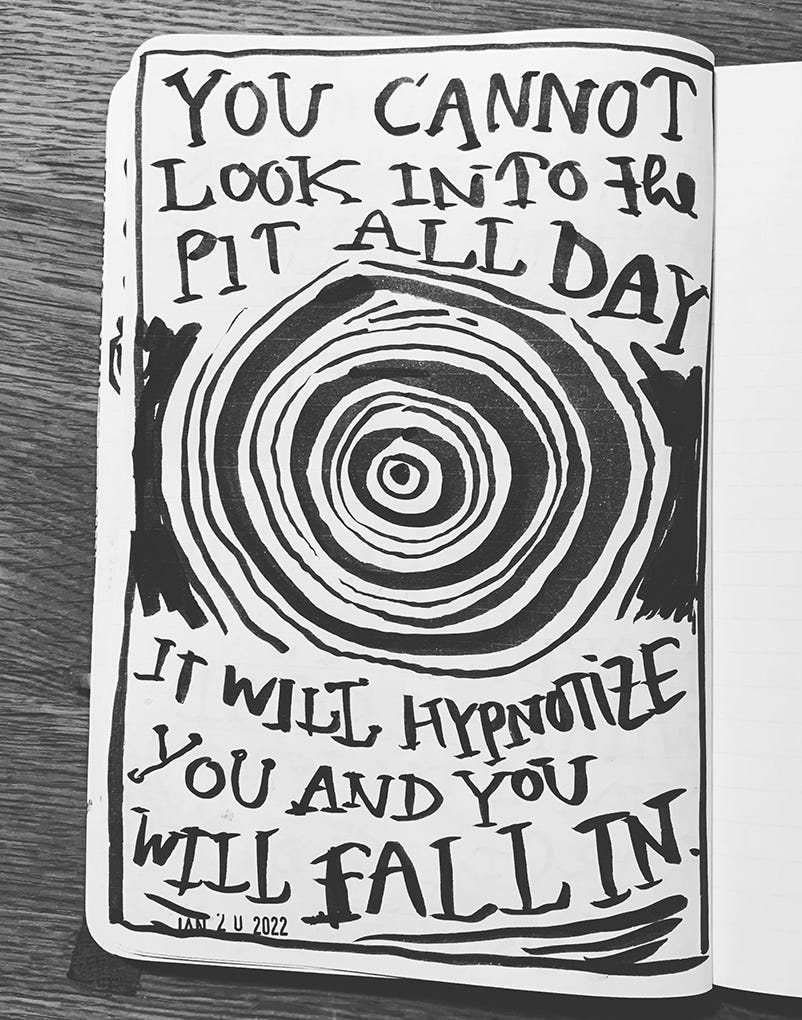 YOU CANNOT
LOOK INTO the
PIT ALL DAY
IT WILL HYPNOTIZE
YOU AND YOU
WILL FALL IN.
JAN 20 2022